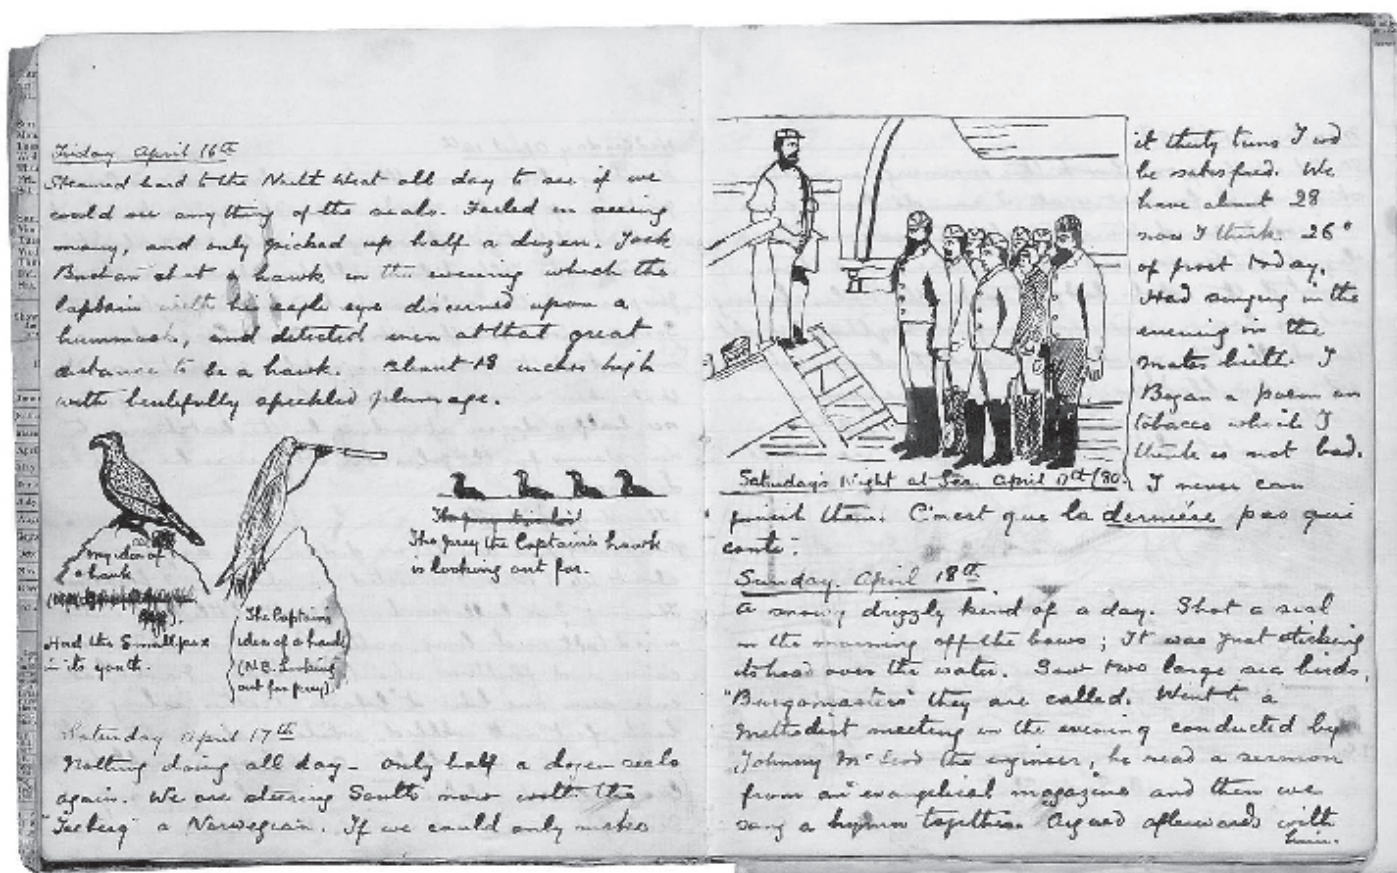 Friday April 16th
Steamed hard to the North West all day to see if we
could see anything of the seals. Failed in seeing
many, and only picked up half a dozen. Jack
Buchan shot a hawk in the evening which the
Captain with his eagle eye discerned upon a
hummock, and detected even at that great
distance to be a hawk. About 18 inches high
with beutifully speckled plumage.
My idea of
a hawk
(N.B.
Had the Smallpox
in its youth.
The Captains
idea of a hawk
(N.B. Looking
out for prey)
The prey the Captain's hawk
is looking out for.
Saturday April 17th
Nothing doing all day - only half a dozen seals
again. We are steering South now with the
"Iceberg" a Norwegian. If we could only make
it thirty tuns I wd
be satisfied. We
have about 28
now I think. 26°
of frost today.
Had singing in the
evening in the
mates birth. I
Began a poem on
tobacco which I
think is not bad.
I never can
Saturdays Night at Sea. April 17th /80.
finish them. C'n'est que la dernière pas qui
conte.
Sunday. April 18th
A snowy drizzly kind of a day. Shot a seal
in the morning off the bows; It was just sticking
its head over the water. Saw two large sea birds,
"Burgomasters" they are called. Went to a
Methodist meeting in the evening conducted by
Johnny McLeod the engineer, he read a sermon
from an evangelical magazine and then we
sang a hymn together. Argued afterwards with